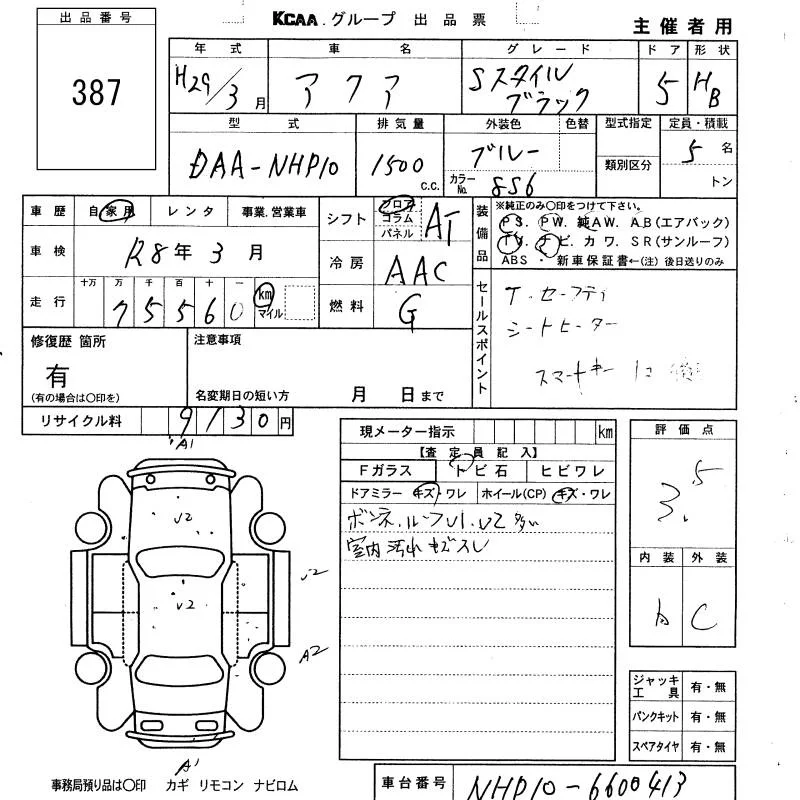 出品番号
387
KCAA.グループ 出品票
主催者用
年式 車名 グレード ドア 形状
H29/3月 アクア Sスタイル ブラック 5 HB
型式 排気量 外装色 色替 型式指定 定員・積載
類別区分
DAA-NHP10 1500 C.C. ブルー 5名
カラーNo. 8S6 トン
車歴 自家用 レンタ 事業.営業車
車検 R8年3月
走行 十万 万 千 百 十 km
7 5 5 6 0 マイル
シフト フロア コラム パネル AT
冷房 AAC
燃料 G
装備品
※純正のみ〇印をつけて下さい。
PS. PW. 純AW. AB(エアバック)
TV. ナビ. カワ. SR(サンルーフ)
ABS ・ 新車保証書←(注)後日送りのみ
セールスポイント
T.セーフティ
シートヒーター
スマートキー 1コ
修復歴 箇所
有
(有の場合は〇印を)
注意事項
名変期日の短い方 月 日まで
リサイクル料 9130円
現メーター指示 km
【査定員記入】
Fガラス トビ石 ヒビワレ
ドアミラー キズ・ワレ ホイール(CP) キズ・ワレ
ボンネ.ルーフU1.U2多い
室内汚れキズスレ
評価点
3.5
内装 外装
A C
A1
U2
U2
U2
A2
A1
ジャッキ工具 有・無
パンクキット 有・無
スペアタイヤ 有・無
事務局預り品は〇印 カギ リモコン ナビロム
車台番号 NHP10-6600413